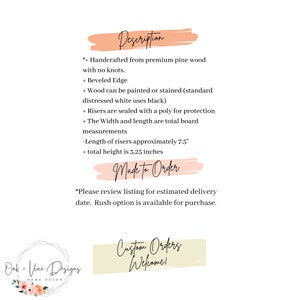 Description
*+ Handcrafted from premium pine wood
with no knots.
+ Beveled Edge
+ Wood can be painted or stained (standard
distressed white uses black)
+ Risers are sealed with a poly for protection
+ The Width and length are total board
measurements
-Length of risers approximately 7.5"
+ total height is 3.25 inches
Made to Order
*Please review listing for estimated delivery
date. Rush option is available for purchase.
Custom Orders
Welcome!
Oak + Vine Designs
HOME DECOR